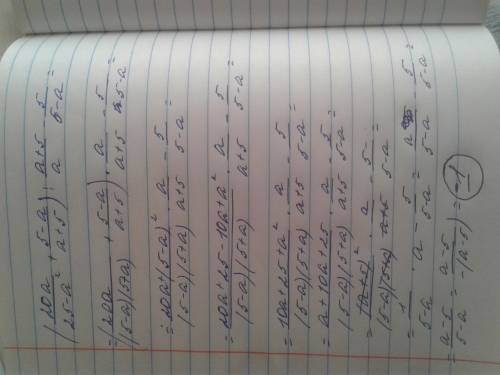 (20a/(25-a²) + (5-a)/(a+5)) : (a+5)/a - 5/(5-a)
(20a/((5-a)(5+a)) + (5-a)/(a+5)) · a/(a+5) - 5/(5-a) =
= (20a+(5-a)²)/((5-a)(5+a)) · a/(a+5) - 5/(5-a) =
= (20a+25-10a+a²)/((5-a)(5+a)) · a/(a+5) - 5/(5-a) =
= (10a+25+a²)/((5-a)(5+a)) · a/(a+5) - 5/(5-a) =
= (a+10a+25)/((5-a)(5+a)) · a/(a+5) - 5/(5-a) =
= (a+5)²/((5-a)(5+a)) · a/(a+5) - 5/(5-a) =
= 1/(5-a) · a - 5/(5-a) = a/(5-a) - 5/(5-a) =
= (a-5)/(5-a) = (a-5)/(-(a-5)) = -1